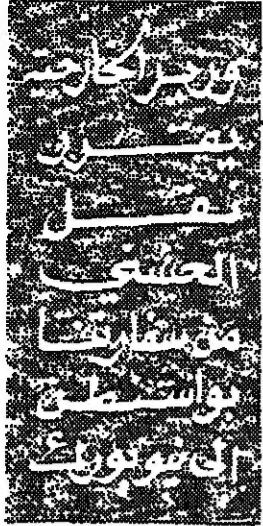 وزير الخارجية
يقرر
نقل
الحسني
من سفارتنا
بواشنطن
الى نيويورك